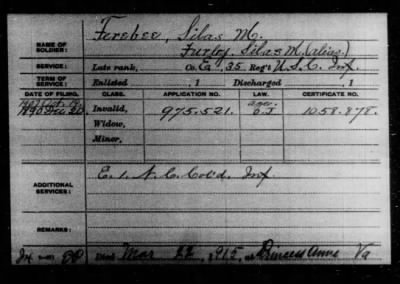 Ferebee, Silas M.
NAME OF SOLDIER: Furby, Silas M. (alias)
SERVICE: Late rank, Co. E, 35 Reg't U.S.C. Inf.
TERM OF SERVICE: Enlisted , 1 Discharged , 1
DATE OF FILING. CLASS. APPLICATION NO. LAW. CERTIFICATE NO.
1890 Dec 20 Invalid, 975.521. 1058.878.
Widow,
Minor,
ADDITIONAL SERVICES: E. 1. N. C. Col'd. Inf
REMARKS:
Died Mar 22, 1915, at Princess Anne Va